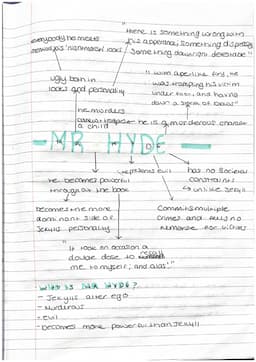 "there is something wrong with
his appearance; something displeasing,
something downright detestable"
everybody he meets
"with ape-like fury, he
was trampling his victim
under foot, and hailing
down a storm of blows"
ugly both in
looks and personality
he murders
a child
he is a murderous character
- MR HYDE -
represents evil
has no societal
constraints
↳ unlike Jekyll
he becomes powerful
throughout the book
becomes the more
dominant side of
Jekylls personality
Commits multiple
crimes and feels no
remorse for victims
"It took on occasion a
double dose to recall
me to myself; and alas!"
WHO IS MR HYDE?
- Jekylls alter ego
- Murderous
- evil
- becomes more powerful than Jekyll